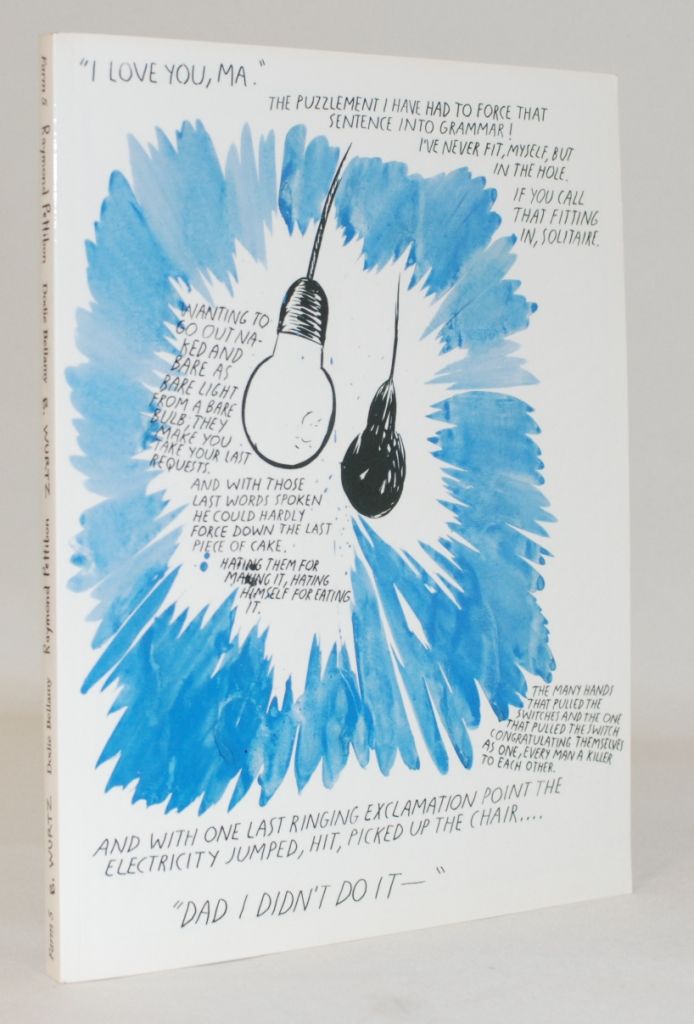 Farm 5 Raymond Pettibon Dodie Bellamy B. WURTZ Raymond Pettibon Dodie Bellamy B. WURTZ Farm 5
"I LOVE YOU, MA."
THE PUZZLEMENT I HAVE HAD TO FORCE THAT
SENTENCE INTO GRAMMAR!
I'VE NEVER FIT, MYSELF, BUT
IN THE HOLE.
IF YOU CALL
THAT FITTING
IN, SOLITAIRE.
WANTING TO
GO OUT NA-
KED AND
BARE AS
BARE LIGHT
FROM A BARE
BULB, THEY
MAKE YOU
TAKE YOUR LAST
REQUESTS.
AND WITH THOSE
LAST WORDS SPOKEN
HE COULD HARDLY
FORCE DOWN THE LAST
PIECE OF CAKE.
HATING THEM FOR
MAKING IT, HATING
HIMSELF FOR EATING
IT.
THE MANY HANDS
THAT PULLED THE
SWITCHES AND THE ONE
THAT PULLED THE SWITCH
CONGRATULATING THEMSELVES
AS ONE, EVERY MAN A KILLER
TO EACH OTHER.
AND WITH ONE LAST RINGING EXCLAMATION POINT THE
ELECTRICITY JUMPED, HIT, PICKED UP THE CHAIR....
"DAD I DIDN'T DO IT— "